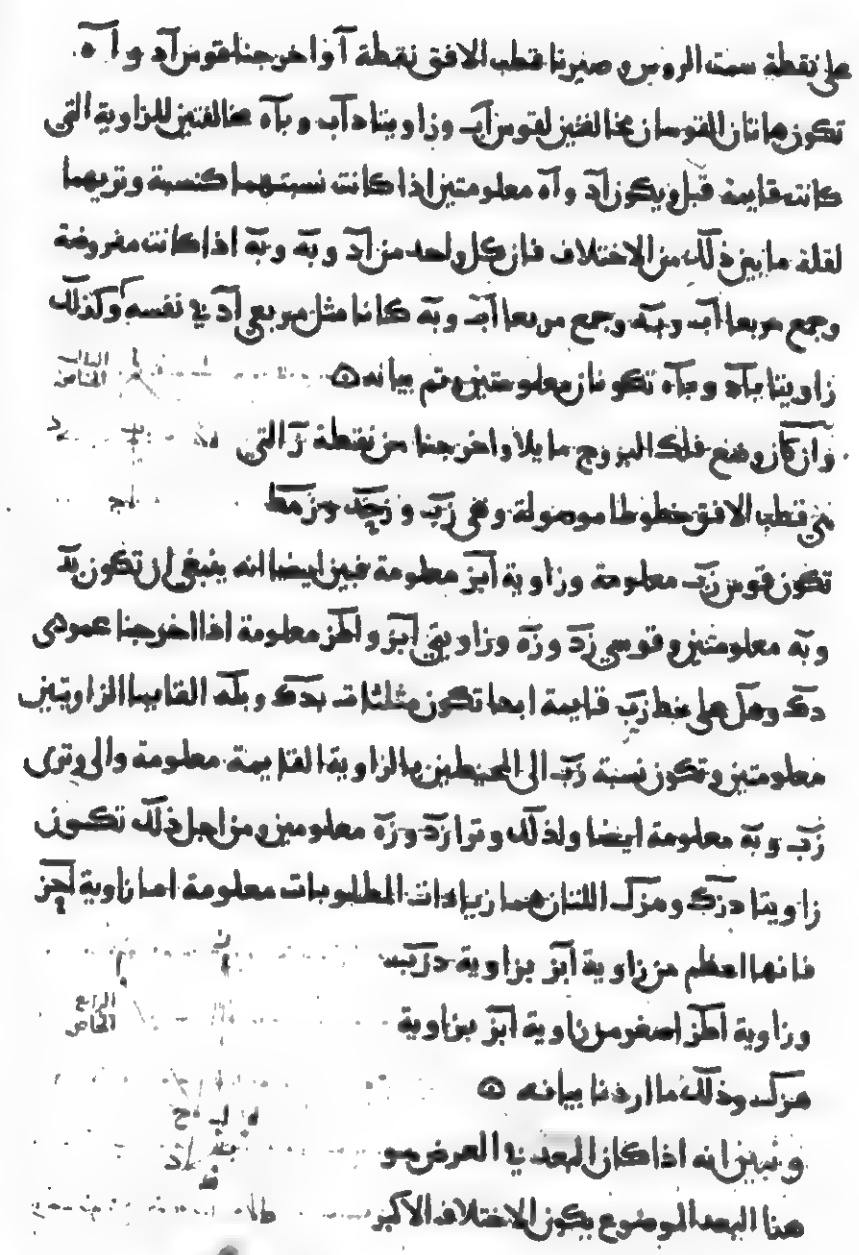 على نقطة سمت الروس وصيرنا قطب الافق نقطة آ واخرجنا قوس آد و آه
تكون هاتان القوسان مخالفتين لقوس آب وزاويتا دآب و بآه مخالفتين للزاوية التي
كانت قايمة قبل ويكون آد و آه معلومتين اذا كانت نسبتهما كنسبة وتريهما
لقلة ما بين ذلك من الاختلاف فان كل واحد من آد و بة و بة اذا كانت مفروضة
وجمع مربعا آب و بة وجمع مربعا آب و بة كانا مثل مربعي آد في نفسه وكذلك
زاويتا بآد و بآه تكونان معلومتين وتم بيانه
الثالث
الخامس
وان كان وضع فلك البروج مايلا واخرجنا من نقطة ز التي
هي قطب الافق خطوطا موصولة وهي زب و زجد و زمط
تكون قوس زب معلومة وزاوية آبز معلومة فبين ايضا انه ينبغي ان تكون بد
وبة معلومتين وقوسي زد وزه وزاويتي آبز و اطز معلومة اذا اخرجنا عمودي
دك وهل على خط زب قايمة ابها تكون مثلثات بدك و بله القايما الزاويتين
معلومتين وتكون نسبة زب الى المحيطين بالزاوية القايمة معلومة والى وترى
زب و بة معلومة ايضا ولذلك وترا زد وزه معلومين ومن اجل ذلك تكون
زاويتا دزك وهزل اللتان هما زيادات المطلوبات معلومة اما زاوية اجز
فانها اعظم من زاوية آبز بزاوية دزب
الرابع
الخامس
وزاوية اطز اصغر من زاوية آبز بزاوية
هزل وذلك ما اردنا بيانه
وتبين انه اذا كان البعد في العرض هو
هذا البعد الموضوع يكون الاختلاف الاكبر